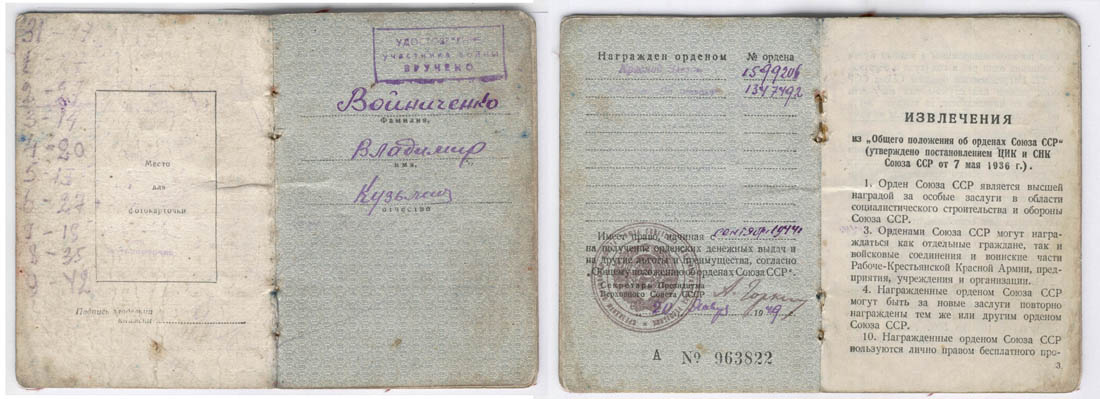 31 - 17
4 - 20
6 - 27
9 - 19
8 - 35
Место
для
фотокарточки
Подпись владельца
книжки
УДОСТОВЕРЕНИЕ
участника войны
ВРУЧЕНО
Войниченко
Фамилия,
Владимир
имя,
Кузьмич
отчество
Награжден орденом № ордена
Красной Звезды 1599206
1347492
Имеет право, начиная с сентябр. 1944
на получение орденских денежных выдач и
на другие льготы и преимущества, согласно
„Общему положению об орденах Союза ССР“.
Секретарь Президиума
Верховного Совета СССР А. Горкин
20 1949
А № 963822
ИЗВЛЕЧЕНИЯ
из „Общего положения об орденах Союза ССР“
(утверждено постановлением ЦИК и СНК
Союза ССР от 7 мая 1936 г.).
1. Орден Союза ССР является высшей
наградой за особые заслуги в области
социалистического строительства и обороны
Союза ССР.
3. Орденами Союза ССР могут награ-
ждаться как отдельные граждане, так и
войсковые соединения и воинские части
Рабоче-Крестьянской Красной Армии, пред-
приятия, учреждения и организации.
4. Награжденные орденом Союза ССР
могут быть за новые заслуги повторно
награждены тем же или другим орденом
Союза ССР.
10. Награжденные орденом Союза ССР
пользуются лично правом бесплатного про-
3